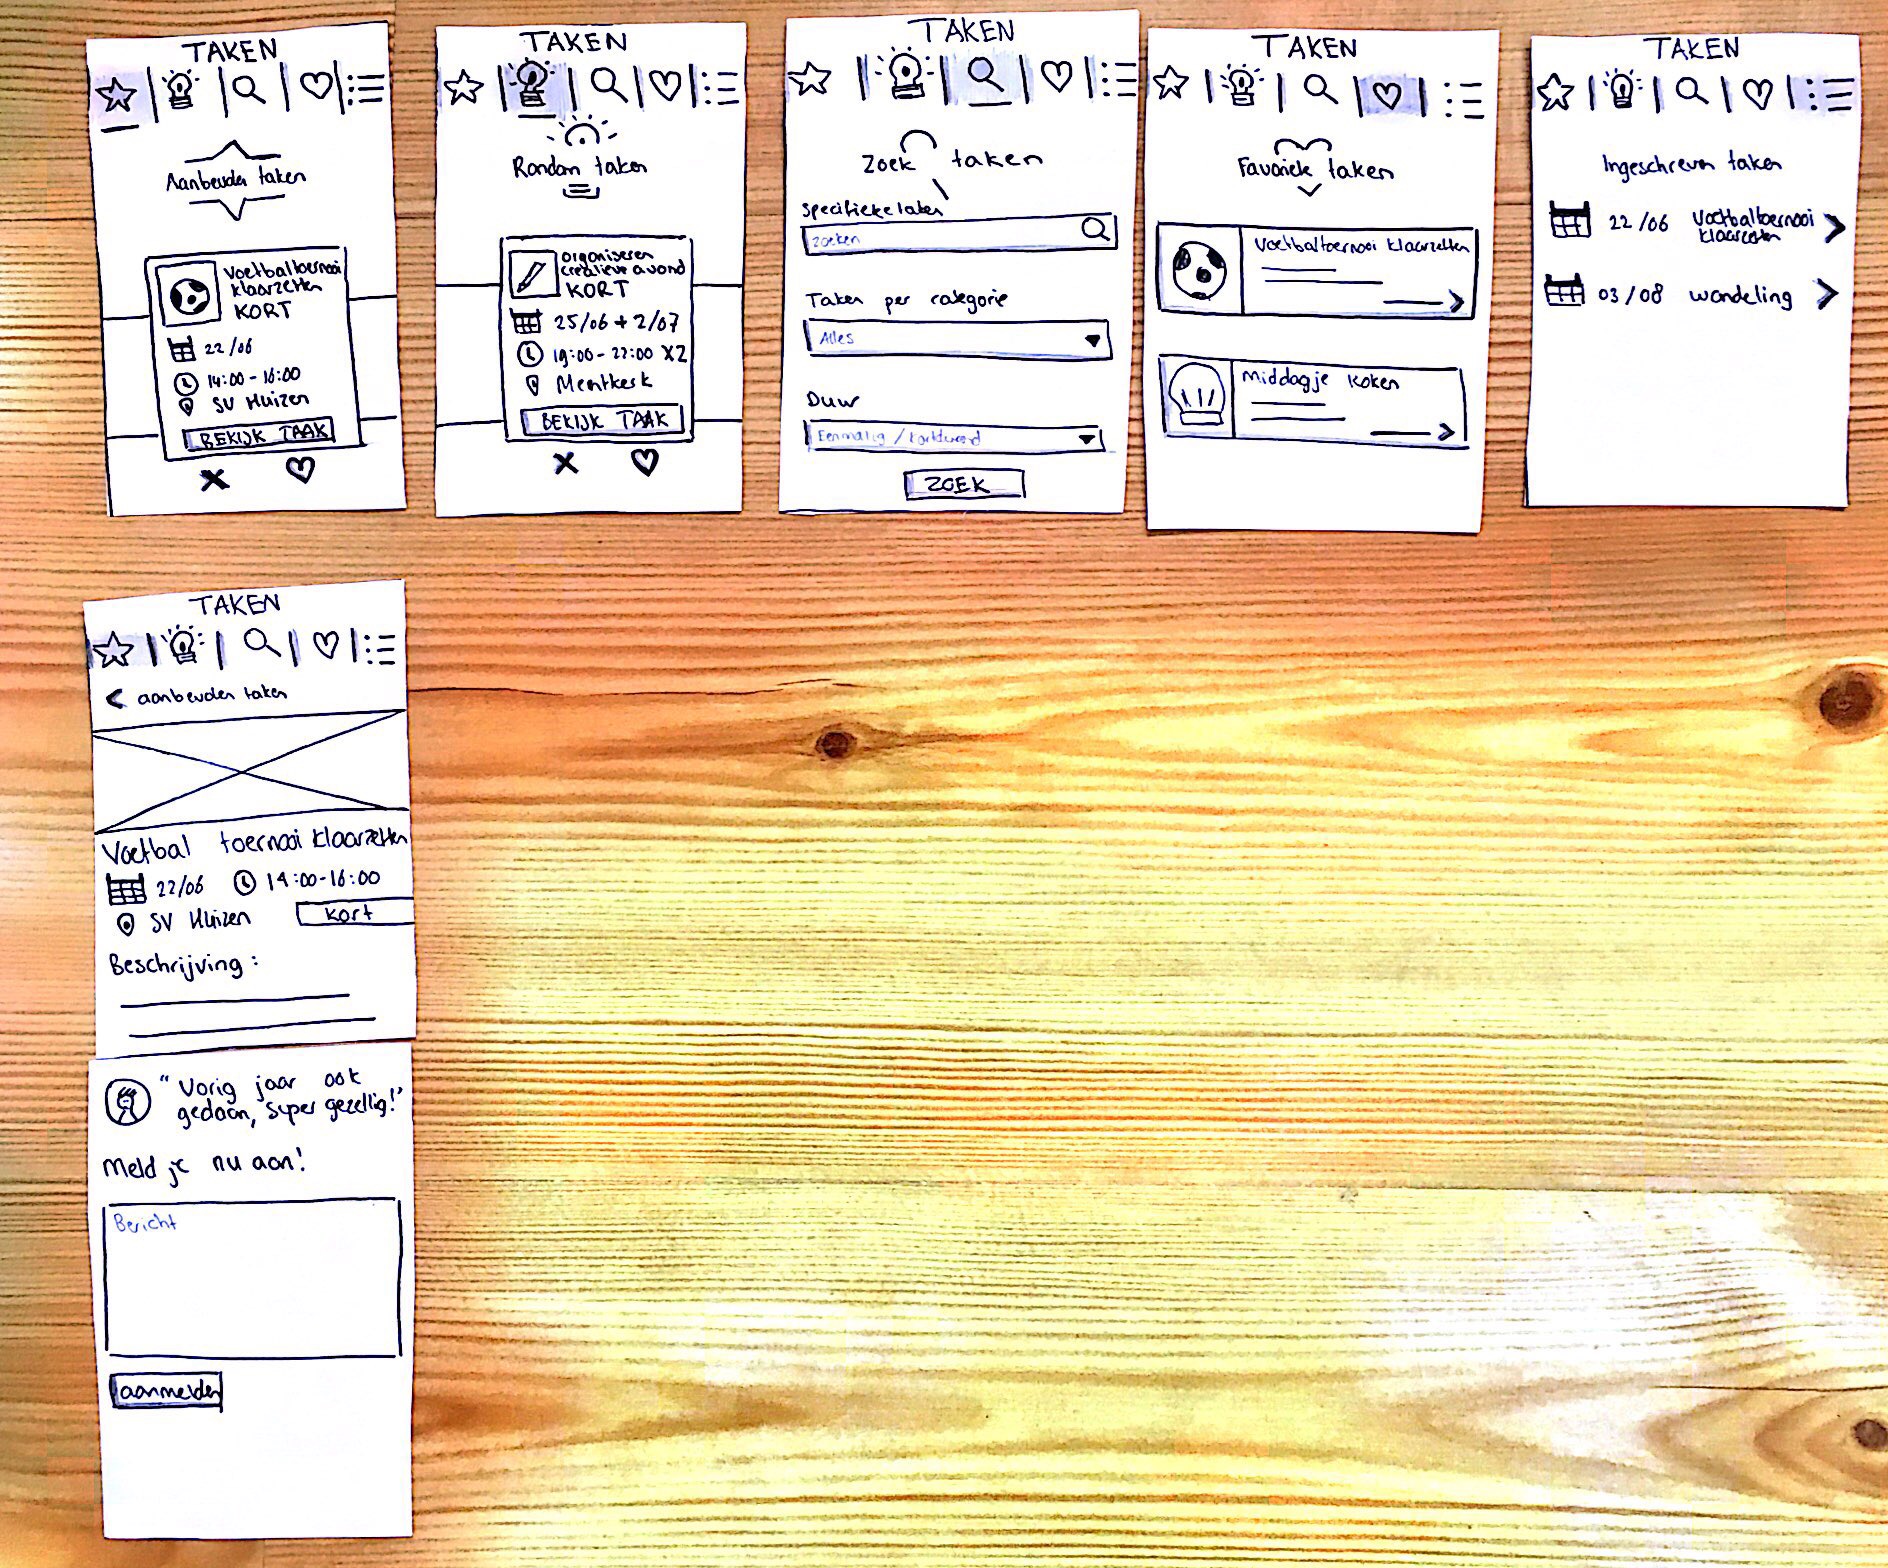 TAKEN
Aanbevolen taken
Voetbaltoernooi
klaarzetten
KORT
22/06
14:00-16:00
SV Huizen
BEKIJK TAAK
TAKEN
Random taken
organiseren
creatieve avond
KORT
25/06 + 2/07
19:00-22:00 X2
BEKIJK TAAK
TAKEN
Zoek taken
Specifieke taken
zoeken
Taken per categorie
Alles
Duur
Eenmalig / kortdurend
ZOEK
TAKEN
Favoriete taken
Voetbaltoernooi klaarzetten
middagje koken
TAKEN
Ingeschreven taken
22/06 Voetbaltoernooi
klaarzetten
03/08 wandeling
TAKEN
< aanbevolen taken
Voetbal toernooi klaarzetten
22/06 14:00-16:00
SV Huizen kort
Beschrijving:
"Vorig jaar ook
gedaan, super gezellig!"
Meld je nu aan!
Bericht
aanmelden